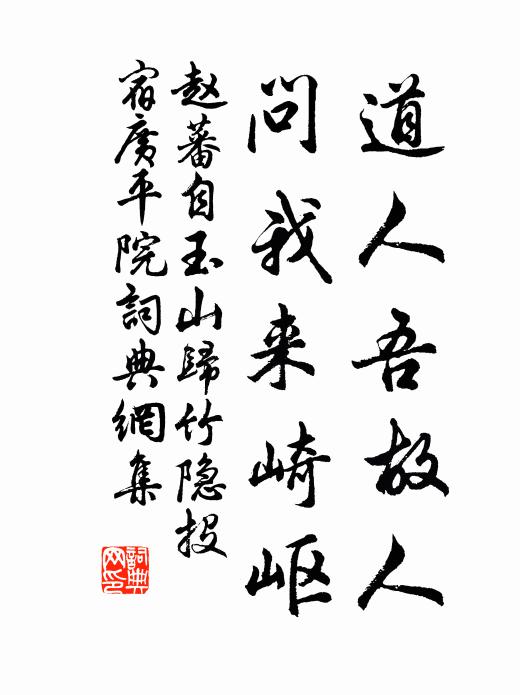 道人吾故人
问我来崎岖
赵蕃自玉山歸竹隐投
宿廣平院詞典網集
詞典网印